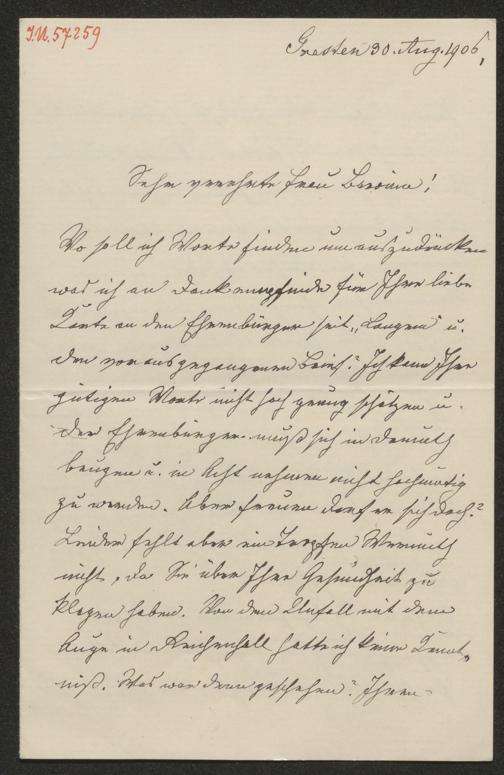 I.N. 57259
Gresten 30. Aug. 1906,
Sehr verehrte Frau Baronin!
Wo soll ich Worte finden um auszudrücken
was ich an Dank empfinde für Ihre liebe
Karte an den Ehrenbürger seit „Langem“ u.
den vorausgegangenen Brief? Ich kann Ihre
gütigen Worte nicht hoch genug schätzen u.
der Ehrenbürger muß sich in Demuth
beugen u. in Acht nehmen nicht hochmütig
zu werden. Aber freuen darf er sich doch?
Leider fehlt aber ein Tropfen Wermuth
nicht, da Sie über Ihre Gesundheit zu
klagen haben. Von dem Unfall mit dem
Auge in Reichenhall hatte ich keine Kennt-
niß. Was war denn geschehen? Ihren